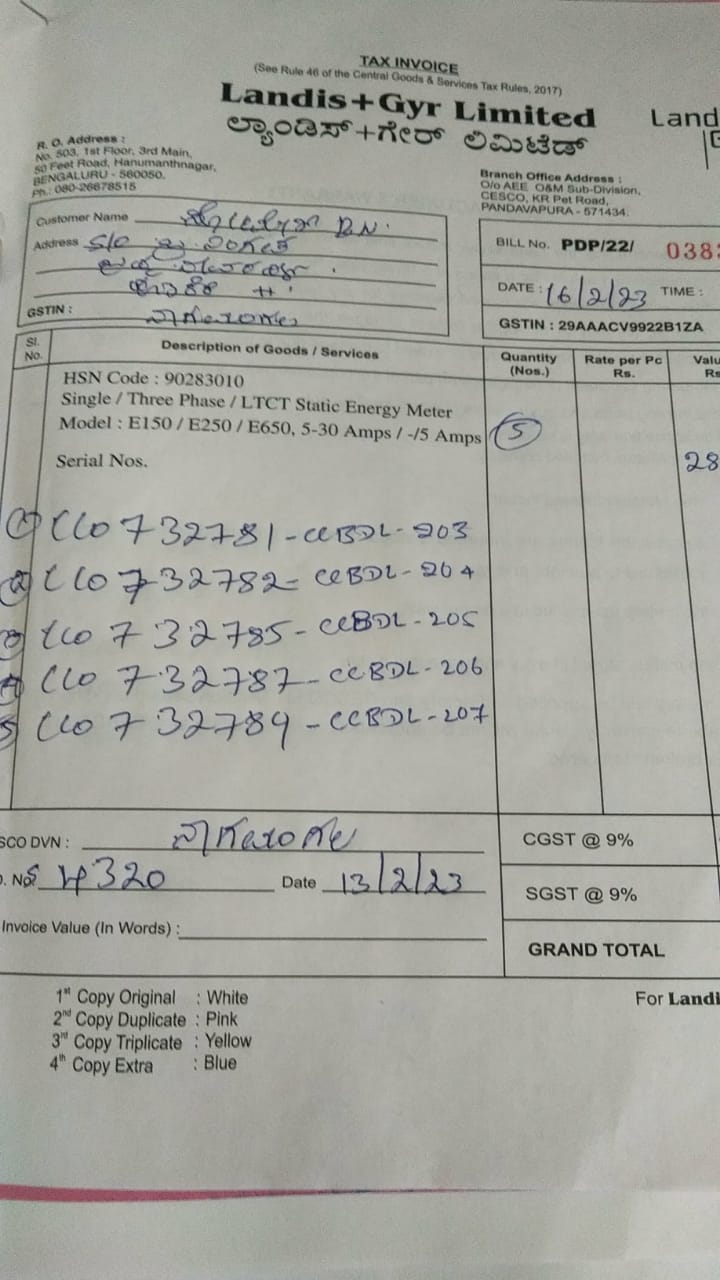 TAX INVOICE
(See Rule 46 of the Central Goods & Services Tax Rules, 2017)
Landis+Gyr Limited
ಲ್ಯಾಂಡಿಸ್+ಗೇರ್ ಲಿಮಿಟೆಡ್
Land
R. O. Address :
No. 503, 1st Floor, 3rd Main,
50 Feet Road, Hanumanthnagar,
BENGALURU - 560050.
Ph.: 080-26678515
Branch Office Address :
O/o AEE O&M Sub-Division,
CESCO, KR Pet Road,
PANDAVAPURA - 571434.
Customer Name
Address S/o
GSTIN :
BILL No. PDP/22/ 038
DATE : 16/2/23 TIME :
GSTIN : 29AAACV9922B1ZA
Sl. No. Description of Goods / Services Quantity (Nos.) Rate per Pc Rs. Valu Rs
HSN Code : 90283010
Single / Three Phase / LTCT Static Energy Meter
Model : E150 / E250 / E650, 5-30 Amps / -/5 Amps 5
Serial Nos. 28
1 CC0732781-CCBDL-203
2 CC0732782-CCBDL-204
3 CC0732785-CCBDL-205
4 CC0732787-CCBDL-206
5 CC0732789-CCBDL-207
SCO DVN :
CGST @ 9%
4320 Date 13/2/23
SGST @ 9%
Invoice Value (In Words) :
GRAND TOTAL
1st Copy Original : White
2nd Copy Duplicate : Pink
3rd Copy Triplicate : Yellow
4th Copy Extra : Blue
For Landi